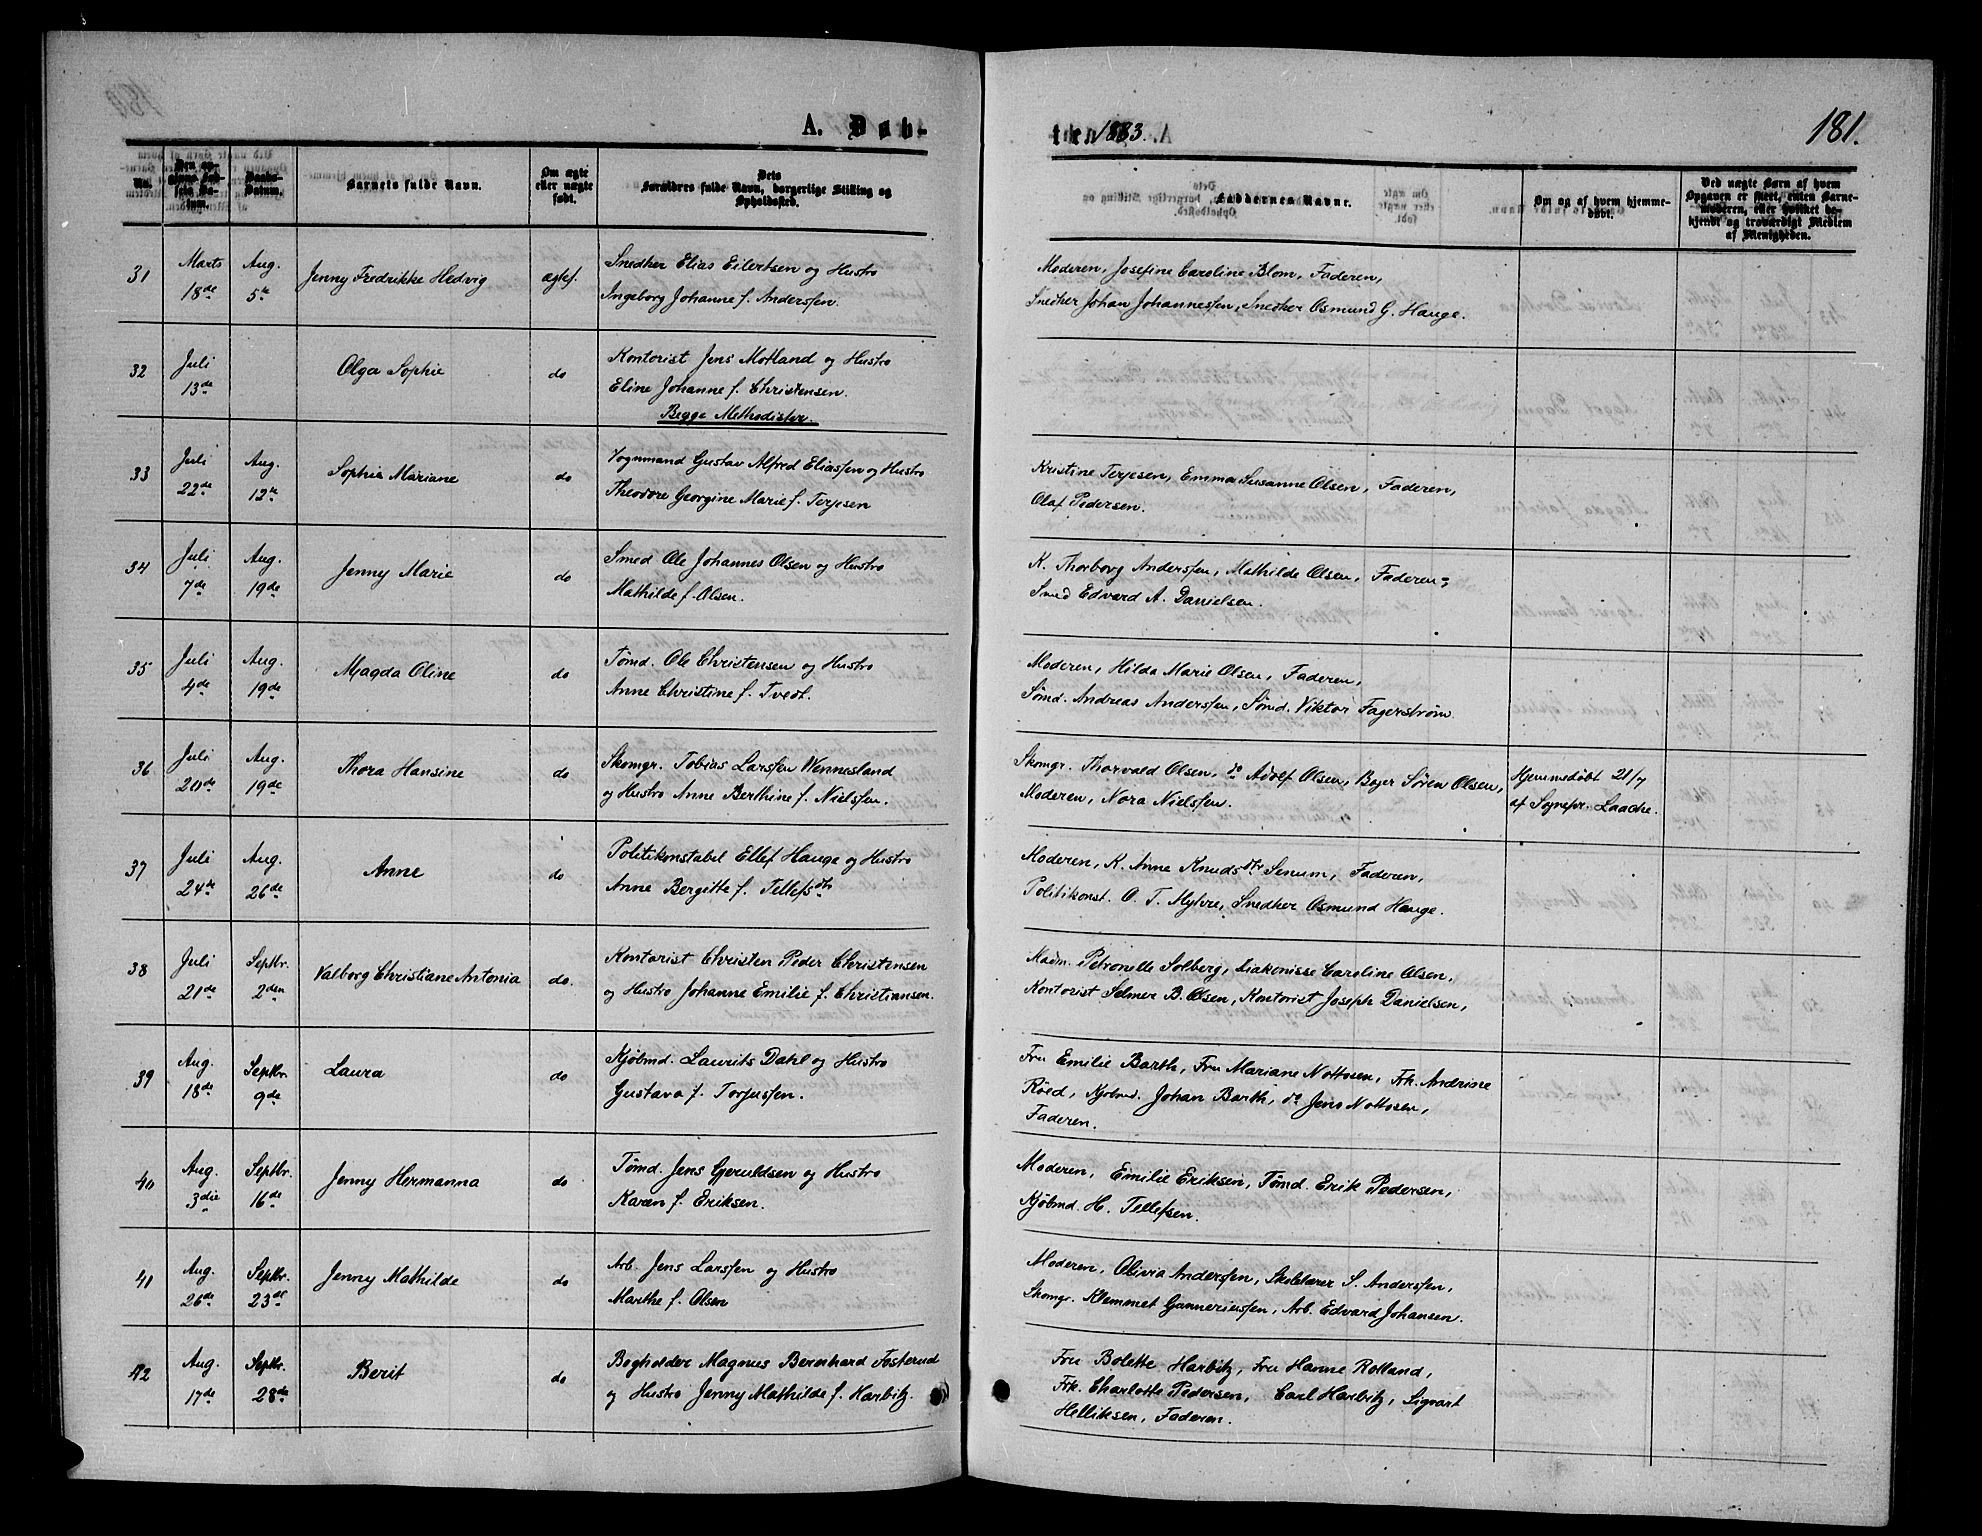 A. Døb-
ten 1883.
181.
No.
Den op-
givne Fød-
sels Da-
tum.
Daabs-
Datum.
Barnets fulde Navn.
Om ægte
eller uægte
født.
Dets
Forældres fulde Navn, borgerlige Stilling og
Opholdssted.
Faddernes Navne.
Om og af hvem hjemme-
døbt.
Ved uægte Børn af hvem
Opgaven er skeet, enten Barne-
moderen, eller hvilket be-
kjendt og troværdigt Medlem
af Menigheden.
31 Marts 18de Aug. 5te Jenny Fredrikke Hedvig ægtef.
Snedker Elias Eilertsen og Hustro
Ingeborg Johanne f. Anderssen.
Moderen, Josefine Caroline Blom, Faderen,
Snedker Johan Johannessen, Snedker Osmund G. Hauge.
32 Juli 13de Olga Sophie do
Kontorist Jens Motland og Hustro
Eline Johanne f. Christensen.
Begge Methodister.
33 Juli 22de Aug. 12te Sophie Mariane do
Vognmand Gustav Alfred Eliassen og Hustro
Theodore Georgine Marie f. Terjesen
Kristine Terjesen, Emma Susanne Olsen, Faderen,
Olaf Pedersen.
34 Juli 7de Aug. 19de Jenny Marie do
Smed Ole Johannes Olsen og Hustro
Mathilde f. Olsen.
K. Thorborg Anderssen, Mathilde Olsen, Faderen,
Smed Edvard A. Danielsen.
35 Juli 4de Aug. 19de Magda Oline do
Tømd. Ole Christensen og Hustro
Anne Christine f. Tvedt.
Moderen, Hilda Marie Olsen, Faderen,
Sømd. Andreas Anderssen, Sømd. Viktor Fagerstrøm.
36 Juli 20de Aug. 19de Thora Hansine do
Skomgr. Tobias Larssen Wennesland
og Hustro Anne Berthine f. Nielssen.
Skomgr. Thorvald Olsen, do Adolf Olsen, Bager Søren Olsen,
Moderen, Nora Nielssen.
Hjemmedøbt 21/7
af Sognepr. Laache.
37 Juli 24de Aug. 26de Anne do
Politikonstabel Ellef Hauge og Hustro
Anne Bergitte f. Tellefsdtr
Moderen, K. Anne Knudsdtr Senum, Faderen,
Politikonst. O. T. Myhre, Snedker Osmund Hauge.
38 Juli 21de Septbr. 2den Valborg Christiane Antonia do.
Kontorist Christen Peder Christensen
og Hustro Johanne Emilie f. Christiansen.
Madm. Petronelle Solberg, Diakonisse Caroline Olsen,
Kontorist Selmer B. Olsen, Kontorist Joseph Danielsen,
39 Aug. 18de Septbr. 9de Laura do
Kjøbmd. Laurits Dahl og Hustro
Gustava f. Torjussen.
Fru Emilie Barth, Fru Mariane Nottosen, Frk. Andrine
Röed, Kjøbmd. Johan Barth, do Jens Nottosen,
Faderen.
40 Aug. 3die Septbr. 16de Jenny Hermanna do
Tømd. Jens Gjeruldsen og Hustro
Karen f. Eriksen.
Moderen, Emilie Eriksen, Tømd. Erik Pedersen,
Kjøbmd. H. Tellefsen.
41 Aug. 26de Septbr. 23de Jenny Mathilde do
Arb. Jens Larssen og Hustro
Marthe f. Olsen
Moderen, Olivia Anderssen, Skolelærer S. Anderssen,
Skomgr. Klemmet Gunneriussen, Arb. Edvard Johansen.
42 Aug. 17de Septbr. 28de Berit do
Bogholder Magnus Bernhard Fosterud
og Hustro Jenny Mathilde f. Harbitz.
Fru Bolette Harbitz, Fru Hanne Rolland,
Frk. Charlotte Pedersen, Carl Harbitz, Sigvart
Helliksen, Faderen.